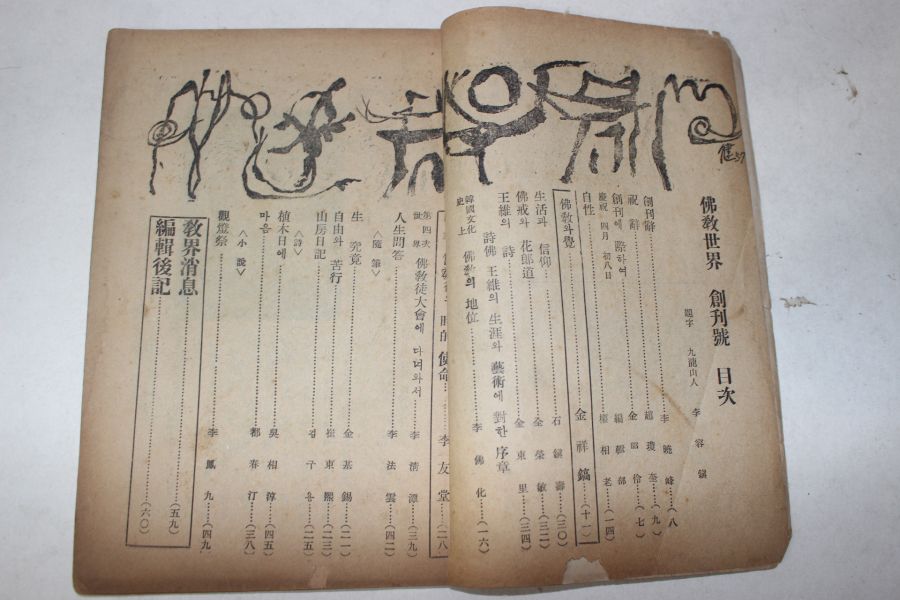 佛敎世界 創刊號 目次
題字 九龍山人 李容
創刊辭 李曉峰 (八)
祝辭 趙瓊奎 (九)
金 (七)
創刊에 際하여 編輯部
慶祝 四月 初八日 權相老 (一四)
自性
佛敎와 覺 金祥鎬 (十一)
生活과 信仰 石鎭壽 (三〇)
佛戒와 花郞道 金榮敏 (三二)
王維의 詩 金東里 (三四)
詩佛 王維의 生涯와 藝術에 對한 序章
韓國文化史上 佛敎의 地位 李佛化 (一六)
時的 使命 李友堂 (二八)
第四次 世界 佛敎徒大會에 다녀와서 李淸潭 (三九)
人生問答 李法雲 (四二)
<隨筆>
生 究竟 金基錫 (二一)
自由와 苦行 崔東熙 (二三)
山房日記 김구용 (二五)
<詩>
植木日에 吳相淳 (四五)
마음 都春汀 (三八)
<小說>
觀燈祭 李鳳九 (四九
敎界消息 (五九)
編輯後記 (六〇)